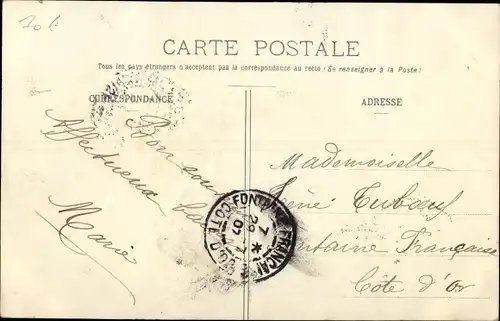 CARTE POSTALE
Tous les pays étrangers n'acceptent pas la correspondance au recto (Se renseigner à la Poste)
CORRESPONDANCE
ADRESSE
Bon
Affectueux
Marie
Mademoiselle
Fontaine Française
Côte d'Or
FONTAINE-FRANÇAISE
CÔTE D'OR
7 *
29 -7
07